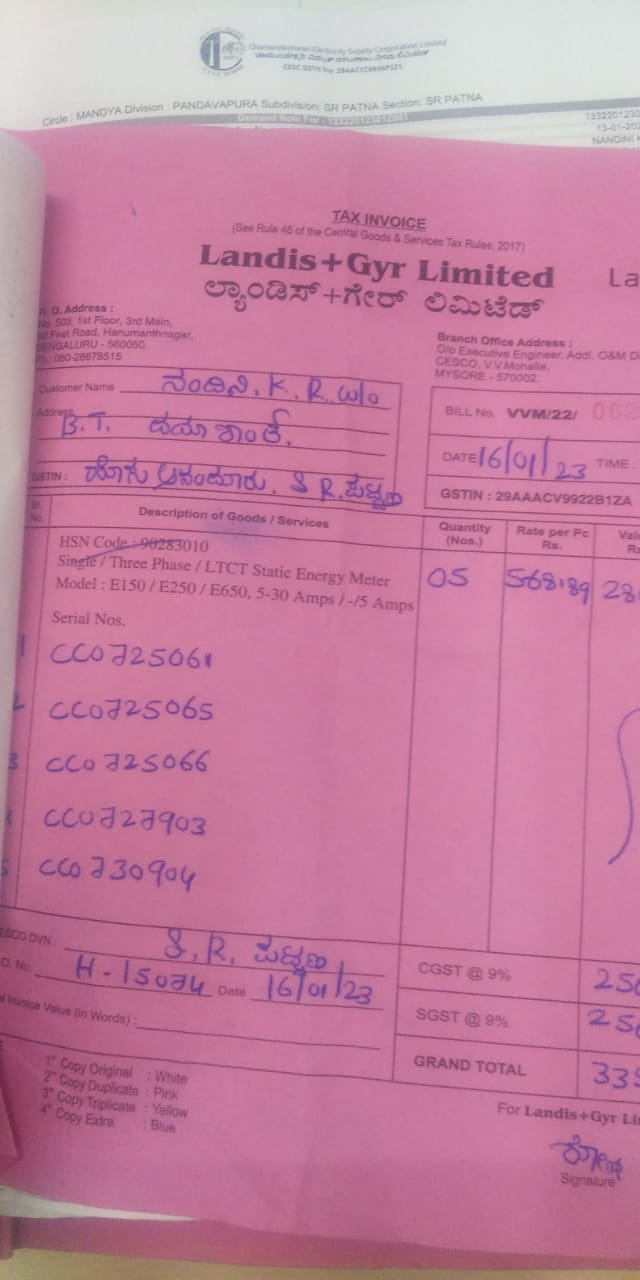 Chamundeshwari Electricity Supply Corporation Limited
CESC GSTN No:
Circle : MANDYA Division : PANDAVAPURA Subdivision: SR PATNA Section: SR PATNA
Demand Note For -
1332201230
13-01-202
NANDINI K
TAX INVOICE
(See Rule 46 of the Central Goods & Services Tax Rules, 2017)
Landis+Gyr Limited
La
ಲ್ಯಾಂಡಿಸ್+ಗೇರ್ ಲಿಮಿಟೆಡ್
R. O. Address :
No. 503, 1st Floor, 3rd Main,
Feet Road, Hanumanthnagar,
BENGALURU - 560050.
Ph.: 080-26678515
Branch Office Address :
O/o Executive Engineer, Addl. O&M D
CESCO, V.V.Mohalla,
MYSORE - 570002.
Customer Name ನಂದಿನಿ. K. R. w/o
Address B.T. ದಯಾ
GSTIN : S R.
BILL No. VVM/22/ 062
DATE 16/01/23 TIME :
GSTIN : 29AAACV9922B1ZA
Sl. No. Description of Goods / Services Quantity (Nos.) Rate per Pc Rs. Val Rs
HSN Code : 90283010
Single / Three Phase / LTCT Static Energy Meter 05 568.89 28
Model : E150 / E250 / E650, 5-30 Amps / -/5 Amps
Serial Nos.
1 CC0725061
2 CC0725065
3 CC0725066
4 CC0727903
5 CC0730904
ESCO DVN : S. R.
O. No. H-15074 Date 16/01/23
l Invoice Value (in Words) :
CGST @ 9% 256
SGST @ 9% 256
GRAND TOTAL 335
1st Copy Original : White
2nd Copy Duplicate : Pink
3rd Copy Triplicate : Yellow
4th Copy Extra : Blue
For Landis+Gyr Li
Signature